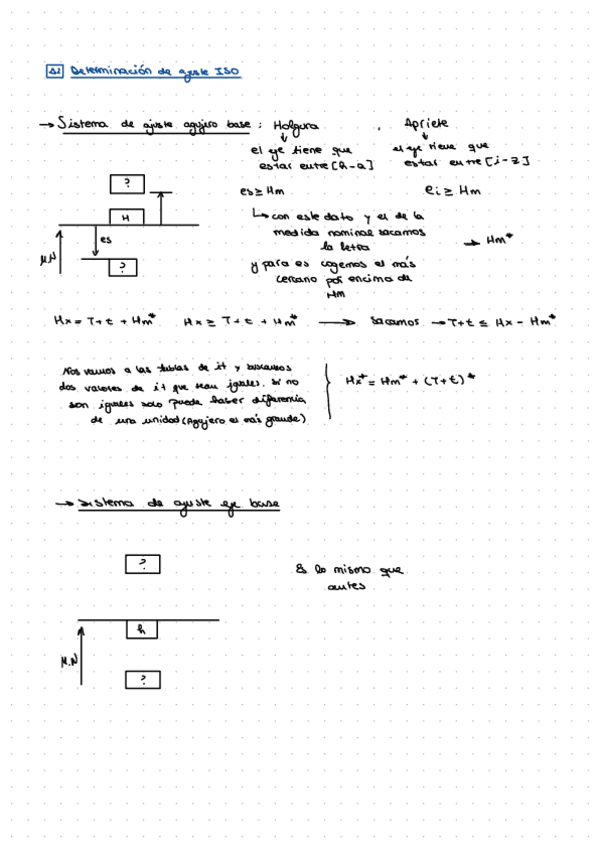 Δ1 Determinación de ajuste ISO
→ Sistema de ajuste agujero base : Holgura , Apriete
el eje tiene que estar entre [h-a]
el eje tiene que estar entre [j-z]
?
H
es
M.N
?
es ≥ Hm
ei ≥ Hm
con este dato y el de la
medida nominal sacamos
la letra
→ Hm*
y para es cogemos el más
cercano por encima de
Hm
Hx = T+t + Hm* Hx ≥ T+t + Hm* → sacamos → T+t ≤ Hx - Hm*
Nos vamos a las tablas de it y buscamos
dos valores de it que sean iguales. Si no
son iguales solo puede haber diferencia
de una unidad (Agujero el más grande)
Hx* = Hm* + (T+t)*
→ Sistema de ajuste eje base
?
h
M.N
?
Es lo mismo que
antes